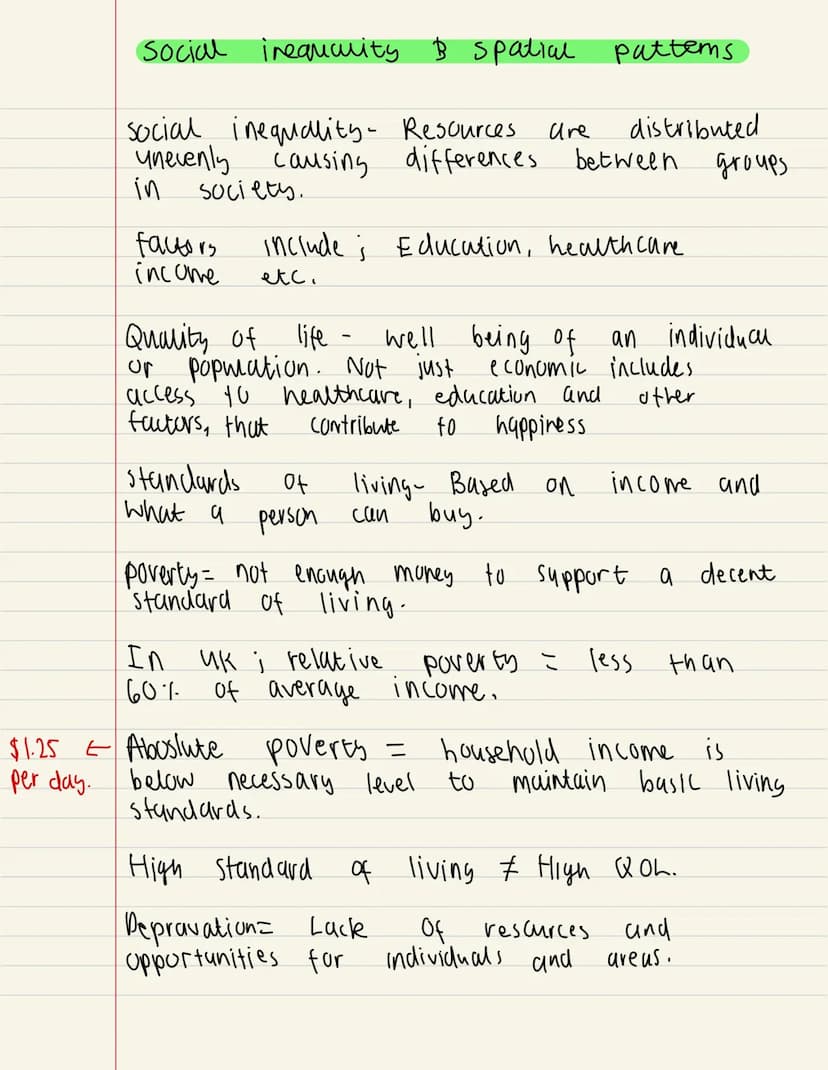 social inequality & spatial patterns
social inequality- Resources are distributed
unevenly causing differences between groups
in society.
factors include ; Education, healthcare
income etc.
Quality of life - well being of an individual
or population. Not just economic includes
access to healthcare, education and other
factors, that contribute to happiness
standards of living- Based on income and
what a person can buy.
poverty= not enough money to support a decent
standard of living.
In UK ; relative poverty = less than
60% of average income.
$1.25 ← Aboslute poverty = household income is
per day. below necessary level to maintain basic living
standards.
High standard of living ≠ High QOL.
Depravation= Lack of resources and
opportunities for individuals and areas.